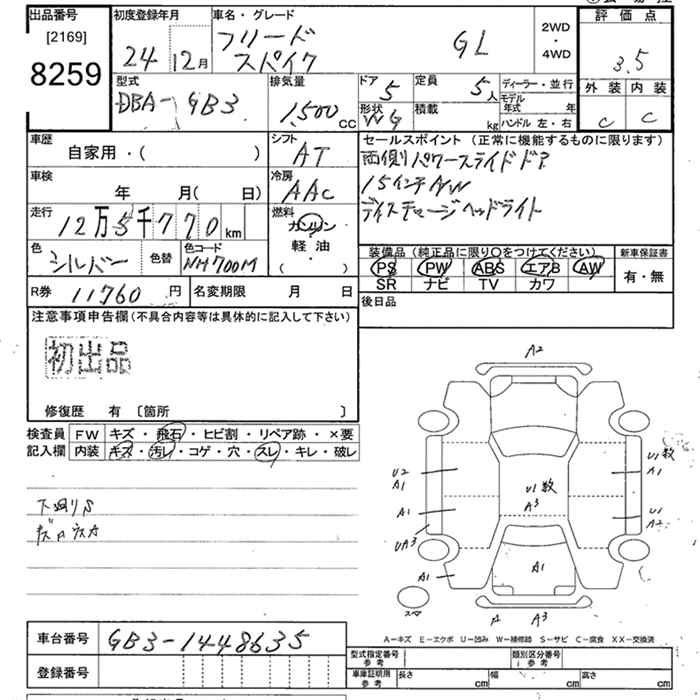 出品番号
[2169]
8259
初度登録年月
24年12月
車名・グレード
フリード
スパイク
GL
2WD
・
4WD
評価点
3.5
外装 内装
C C
型式
DBA-GB3
排気量
1,500 CC
ドア
5
定員
5人
形状
WG
積載
kg
ディーラー・並行
モデル年式 年
ハンドル 左・右
車歴
自家用・( )
シフト
AT
セールスポイント(正常に機能するものに限ります)
両側パワースライドドア
15インチAW
ディスチャージヘッドライト
車検
年 月( 日)
冷房
AAC
走行
12万5千770km
燃料
ガソリン
軽油
( )
色
シルバー
色替
色コード
NH700M
装備品(純正品に限り○をつけてください)
PS PW ABS エアB AW
SR ナビ TV カワ
新車保証書
有・無
R券 11,760円
名変期限 月 日
後日品
注意事項申告欄(不具合内容等は具体的に記入して下さい)
初出品
修復歴 有 〔箇所 〕
検査員 FW キズ・飛石・ヒビ割・リペア跡・×要
記入欄 内装 キズ・汚レ・コゲ・穴・スレ・キレ・破レ
下廻りS
A2
U2
A1
U1数
A1
U1数
A3
A1
U1
A2
UA3
A1
A1
スペア
A
A3
A-キズ E-エクボ U-凹み W-補修跡 S-サビ C-腐食 XX-交換済
車台番号 GB3-1448635
登録番号
型式指定番号
参考
類別区分番号
参考
車庫証明用
参考
長さ cm 幅 cm 高さ cm